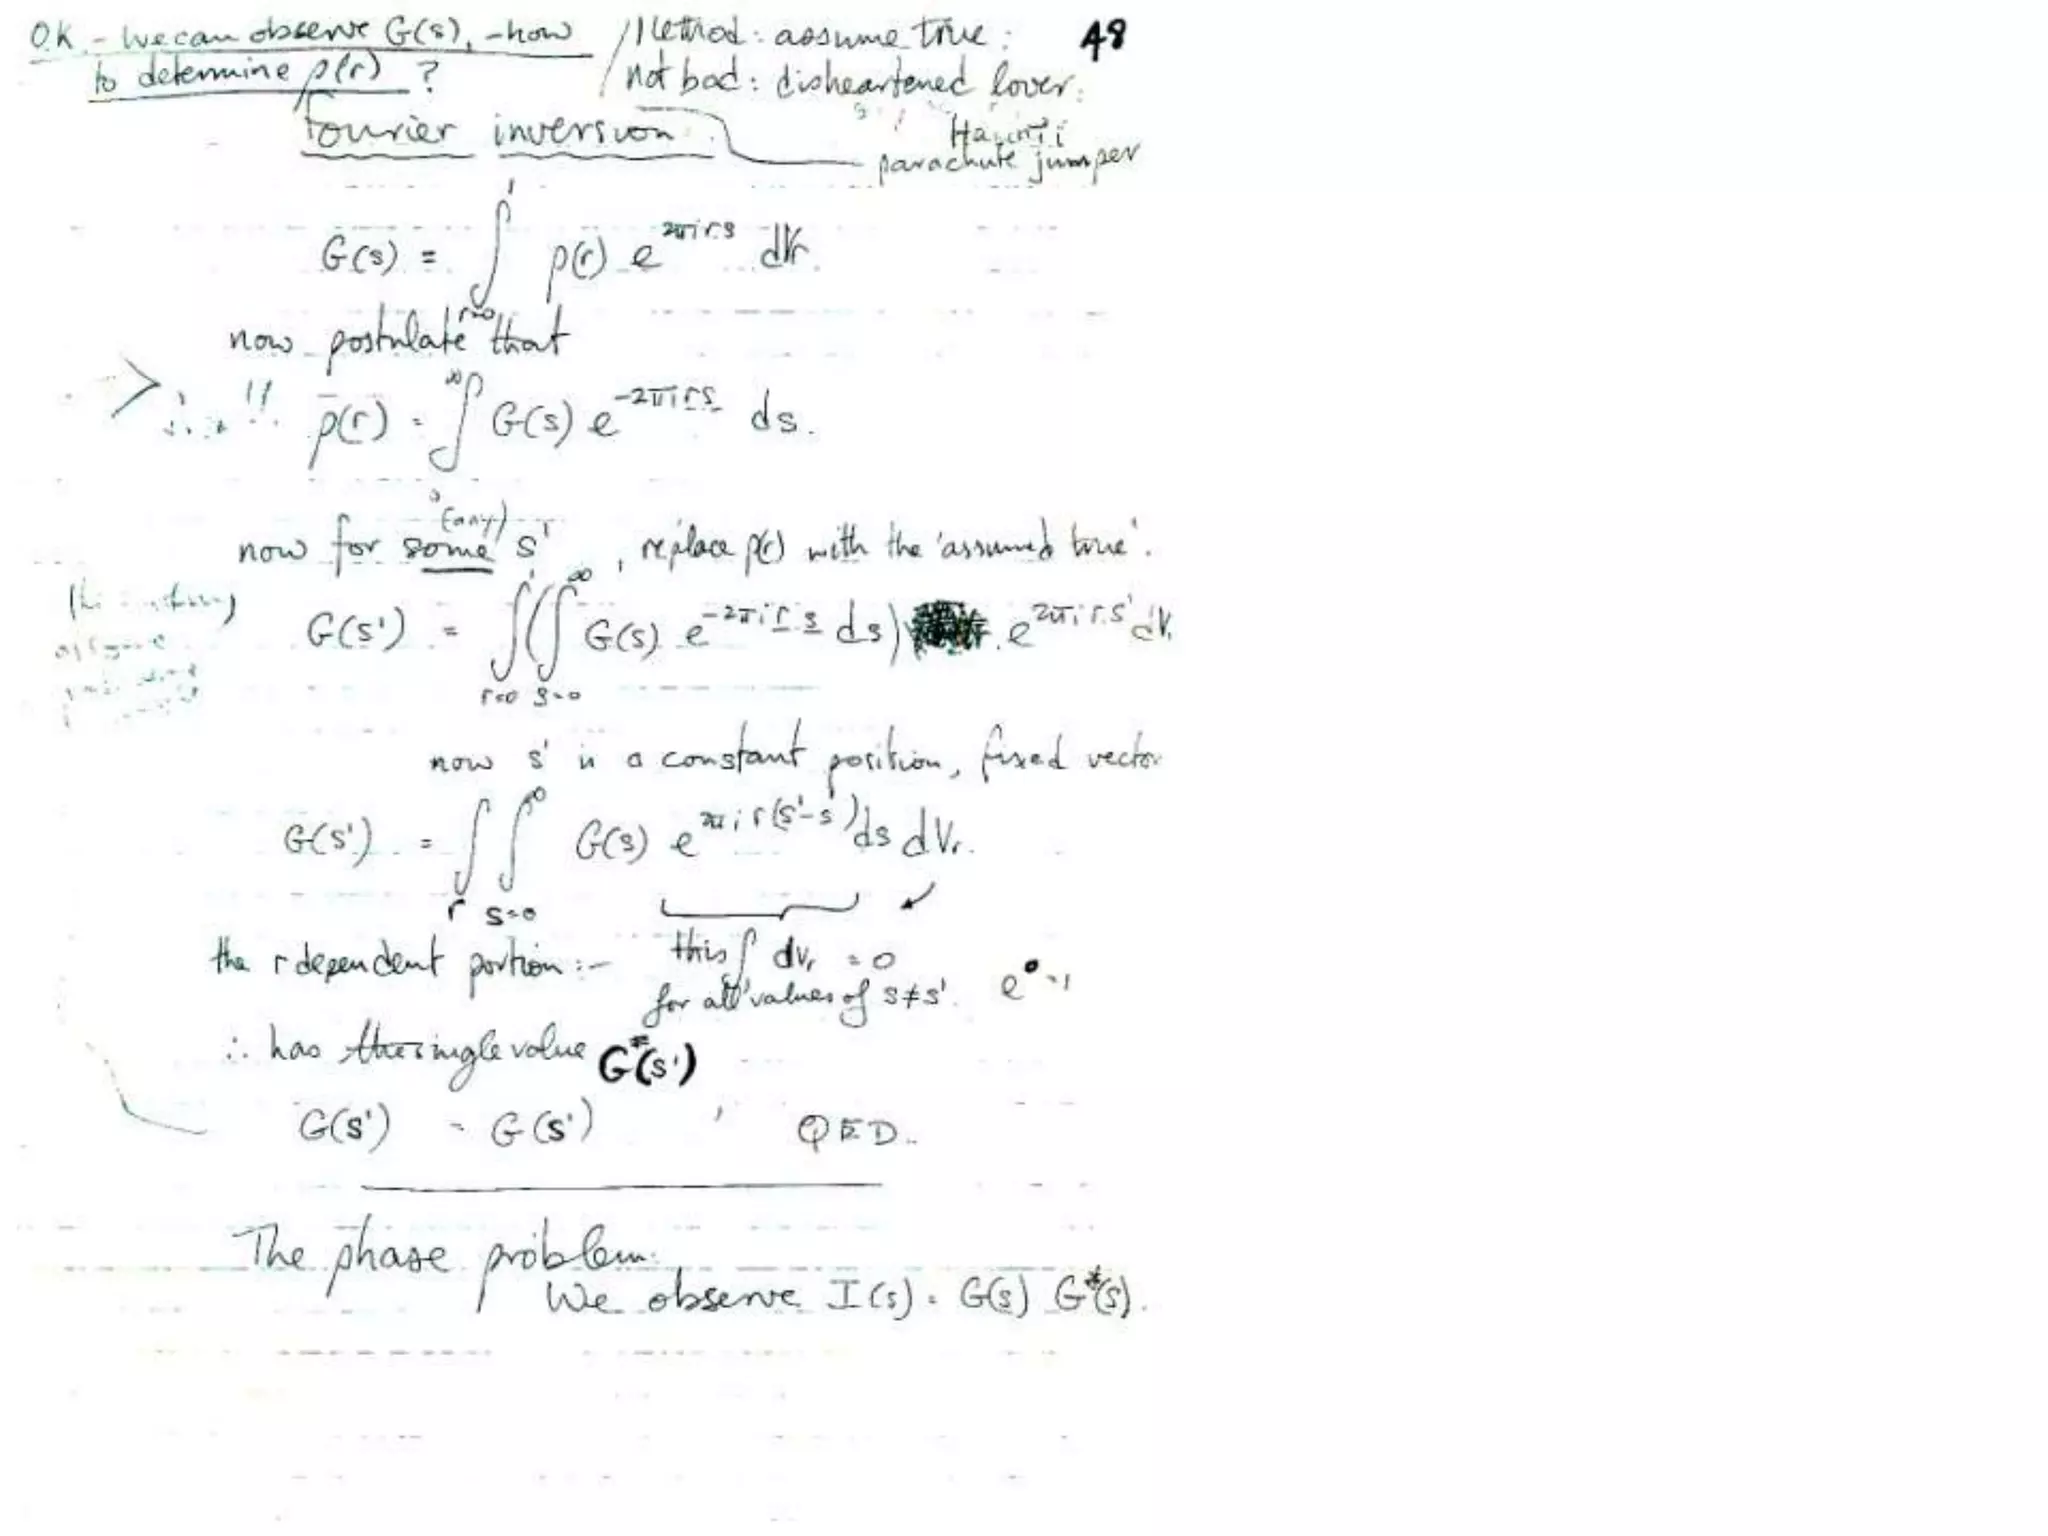 O.K. - We can observe G(s), - how
to determine ρ(r) ?
Method: assume true:
not bad: disheartened lover.
48
parachute jumper
Fourier inversion
G(s) = ∫ ρ(r) e^{2πi r.s} dVr
1
r=0
now postulate that
!! ρ(r) = ∫ G(s) e^{-2πi r.s} ds.
∞
0
(any)
now for some s' , replace ρ(r) with the 'assumed true'.
G(s') = ∫(∫ G(s) e^{-2πi r.s} ds) . e^{2πi r.s'} dV
1 ∞
r=0 s=0
now s' is a constant position, fixed vector
G(s') = ∫∫ G(s) e^{2πi r(s'-s)} ds dVr.
∞
r s=0
the r dependent portion :- this ∫ dVr = 0
for all values of s≠s'. e^0 = 1
∴ has the single value G*(s')
G(s') = G(s') , QED.
The phase problem.
We observe I(s) = G(s) G*(s).